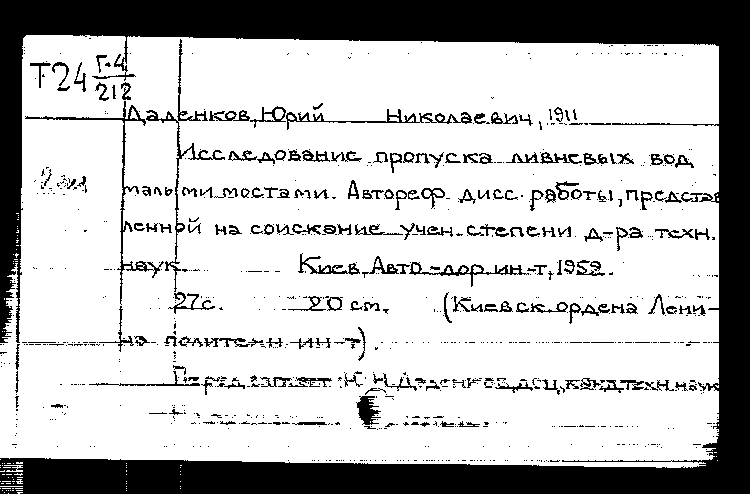 Т24 Г-4
212
Даденков, Юрий Николаевич, 1911
Исследование пропуска ливневых вод
малыми мостами. Автореф. дисс. работы, представ
ленной на соискание учен. степени д-ра техн.
наук. Киев, Авто-дор. ин-т, 1952.
27 с. 20 см. (Киевск. ордена Лени-
на политехн. ин-т).
Перед загл. авт.: Ю. Н. Даденков, доц., канд. техн. наук